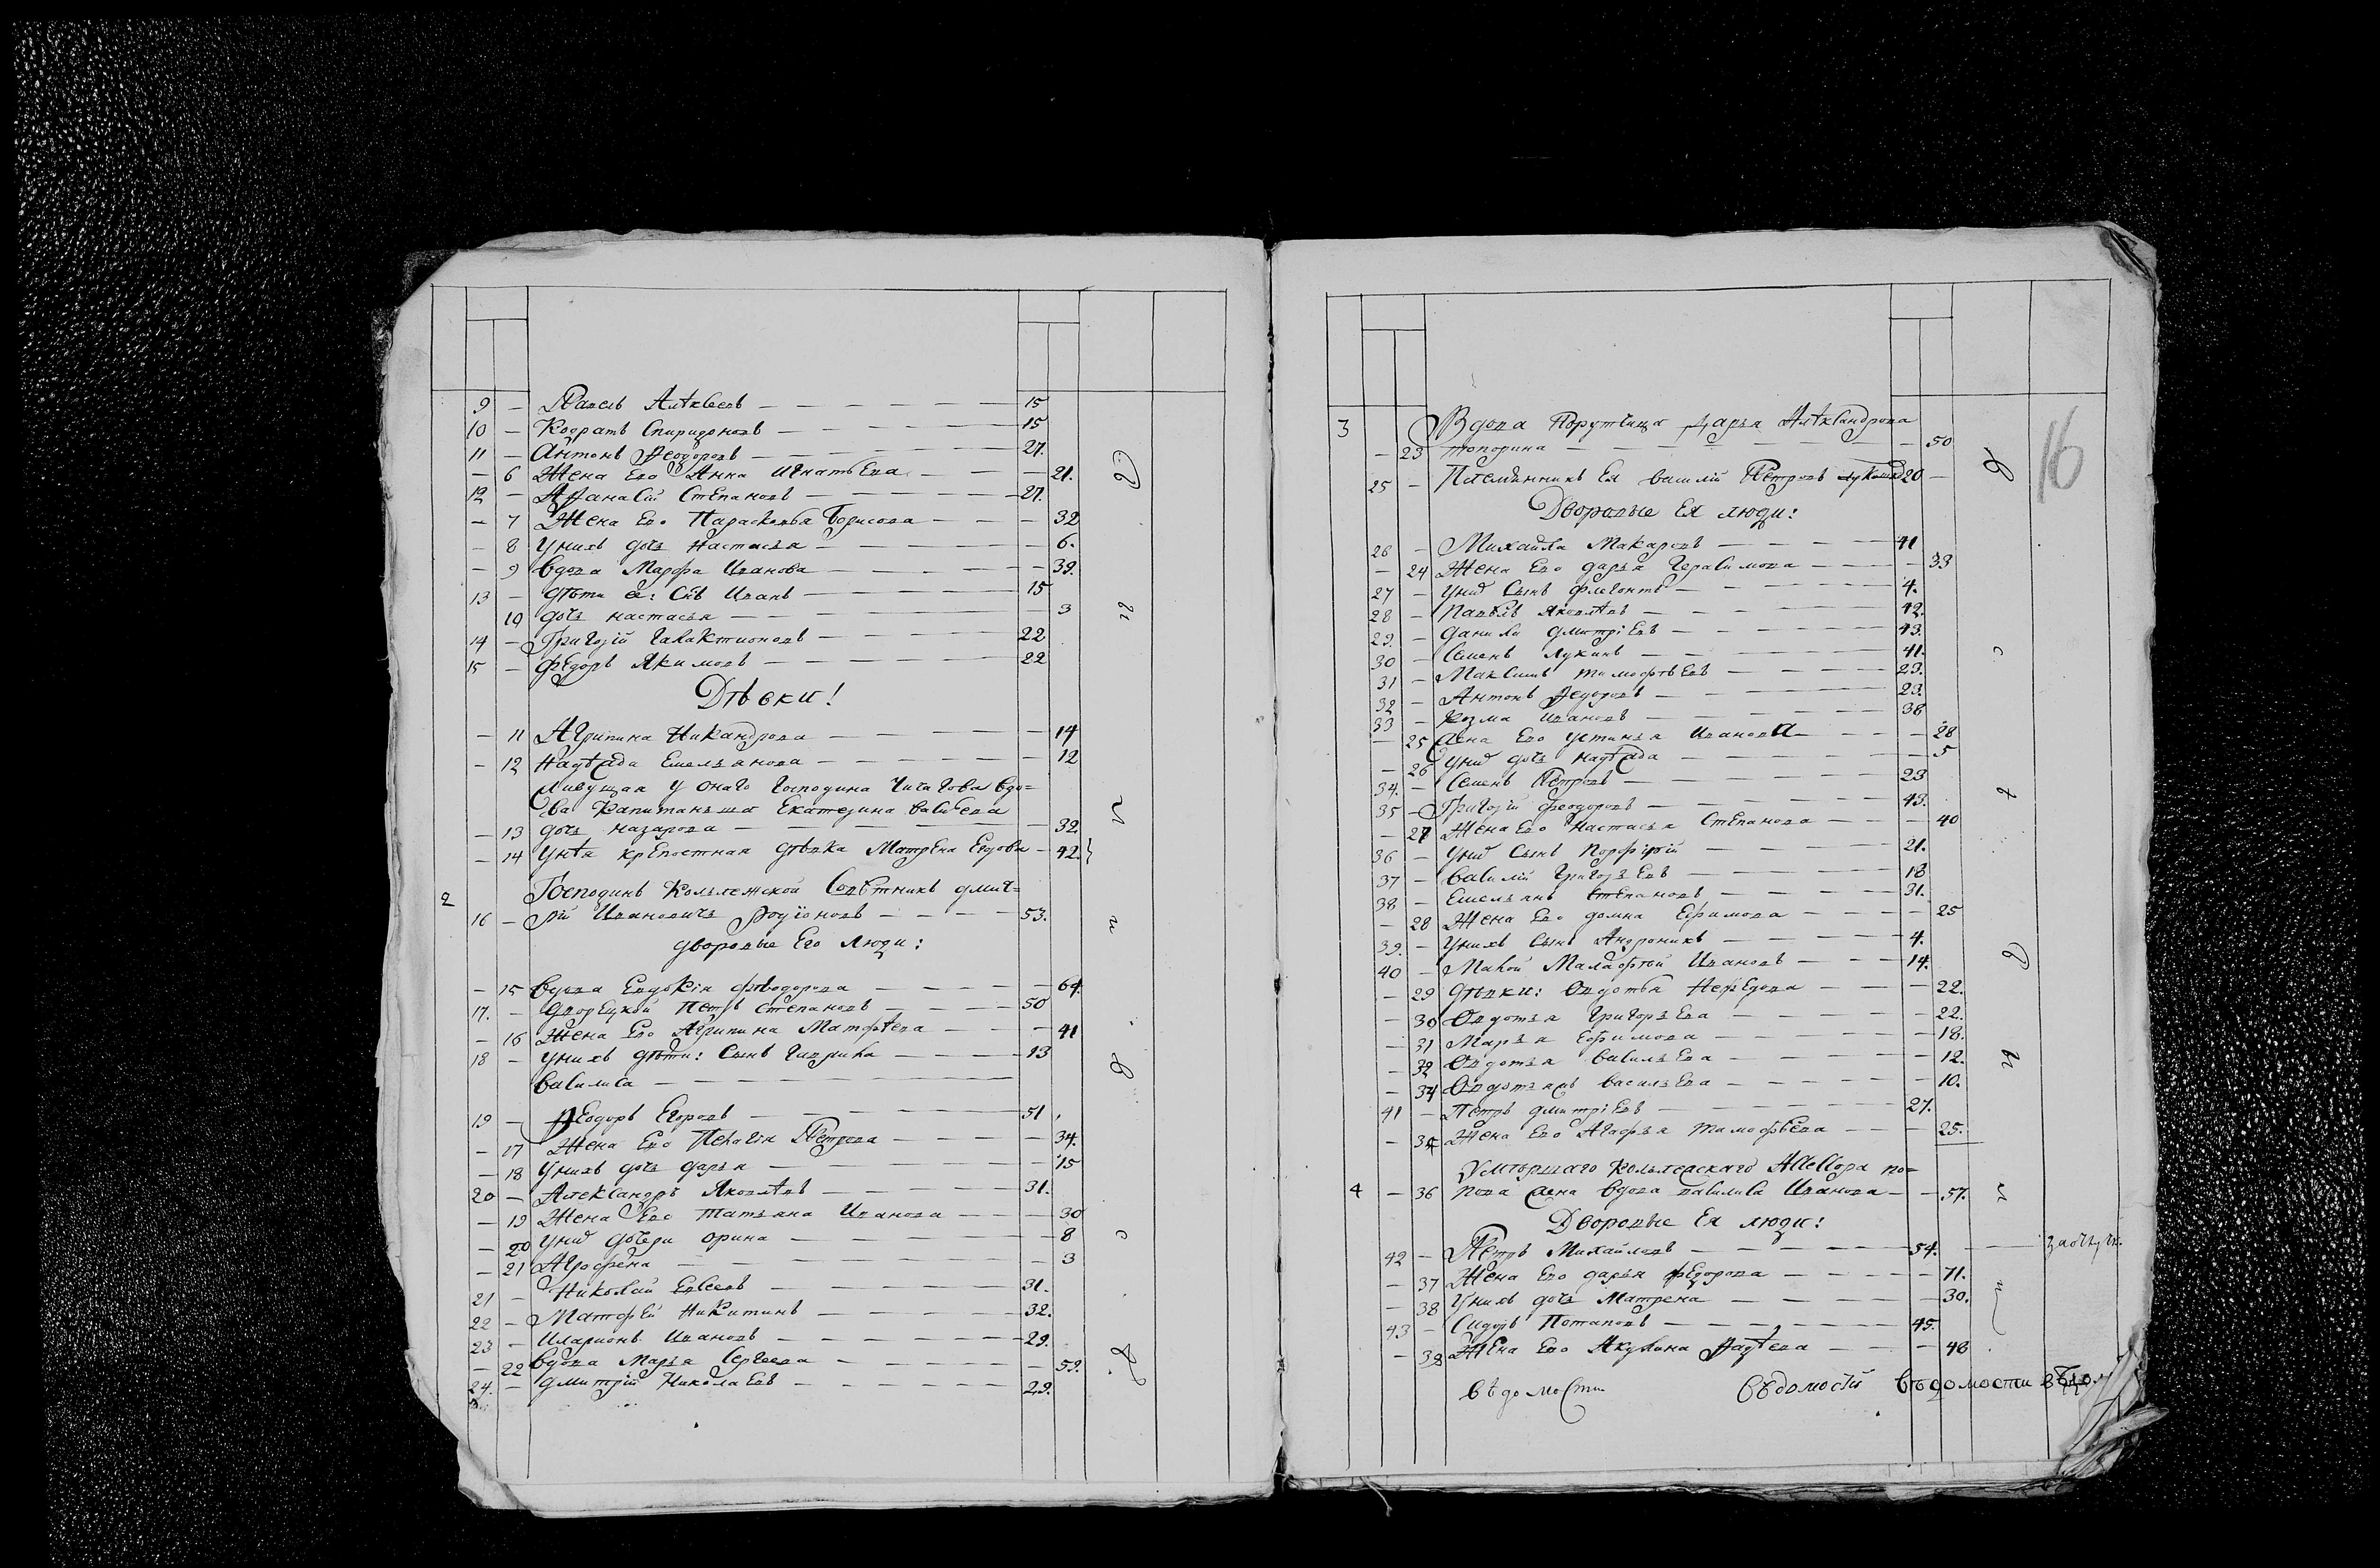 9 — Павелъ Алѣксеевъ — 15
10 — Кодратъ Спиридоновъ — 15
11 — Антонъ Феодоровъ — 27.
— 6 Жена Ево Анна Игнатьева — 21.
12 — Афанасiй Степановъ — 27.
— 7 Жена Ево Парасковья Борисова — 32
— 8 Унихъ дочь Настасья — 6.
— 9 Вдова Марфа Иванова — 39.
13 — Дѣти ее: Снъ Иванъ — 15
10 дочь настасья — 3
14 — Григорiй Галактионовъ — 22
15 — Федоръ Якимовъ — 22
Дѣвки!
— 11 Агрипина Никандрова — 14
— 12 Надѣжда Емельянова — 12
Живущая у онаго Господина Чичагова вдо=
ва Капитанъша Екатерина васильева
— 13 дочь назарова — 32
— 14 Унѣя крепостная дѣвка Матрена Егорова — 42.
2 Господинъ Колѣжской Совѣтникъ дмит=
16 — рiй Ивановичь Родiоновъ — 53.
дворовые Его люди:
— 15 Вдова Евдокiя Феодорова — 64.
17. — Дворецкой Петръ Степановъ — 50
— 16 Жена Ево Агрипина Матфѣева — 41
18 — Унихъ дѣти: Сынъ Гаврила — 13
Василиса —
19 — Феодоръ Егоровъ — 51.
— 17 Жена Ево Пелагiя Петрова — 34.
— 18 Унихъ дочь дарья — 15
20 — Александръ Яковлѣвъ — 31.
— 19 Жена Ево Татьяна Иванова — 30
— 20 Унихъ дочери орина — 8
— 21 Агрофена — 3
21 — Николай Евсеевъ — 31.
22 — Матфей Никитинъ — 32.
23 — Иларионъ Ивановъ — 29.
— 22 Вдова Марья Сергеева — 59.
24. — Дмитрiй Николаевъ — 29.
16
3 Вдова Порутчица Дарья Алѣксандрова
— 23 топорина — 50
25 — Плѣмянникъ Ея василiй Петровъ 20 —
Дворовые Ея люди:
26 — Михайла Макаровъ — 41
— 24 Жена Ево дарья Герасимова — 33
27 — Унихъ Сынъ Флегонтъ — 4.
28 — Павелъ Яковлѣвъ — 42.
29. — Данила Дмитрiевъ — 43.
30 — Семенъ Лукинъ — 41.
31 — Максимъ тимофѣевъ — 23.
32 — Антонъ Федоровъ — 23.
33 — Козма Ивановъ — 38
— 25 жена Ево устинья Иванова — 28
— 26 Унихъ дочь надѣжда — 5
34. — Семенъ Петровъ — 23
35 — Григорiй Феодоровъ — 43.
— 27 Жена Ево Настасья Степанова — 40
36 — Унихъ Сынъ Порфирiй — 21.
37 — Василiй Григорьевъ — 18
38 — Емельянъ Степановъ — 31.
— 28 Жена Ево домна Ефимова — 25
39. — Унихъ Сынъ Андроникъ — 4.
40 — Малой Малафѣй Ивановъ — 14.
— 29 Дѣвки: Овдотья Нефедова — 22.
— 30 Овдотья Григорьева — 22.
— 31 Марья Ефимова — 18.
— 32 Овдотья Васильева — 12.
— 34 Овдотья Васильева — 10.
41 — Петръ дмитрiевъ — 27.
— 35 Жена Ево Агафья тимофѣева — 25.
Умѣршаго Колѣжскаго Ассессора по=
4 — 36 пова жена вдова василиса Иванова — 57.
Дворовые Ея люди:
42 — Петръ Михайловъ — 54.
— 37 Жена Ево дарья Федорова — 71.
— 38 Унихъ дочь Матрена — 30.
43 — Сидоръ Потаповъ — 45.
— 39 Жена Ево Акулина Фадѣева — 48
вѣдомости вѣдомостй вѣдомости вѣдом